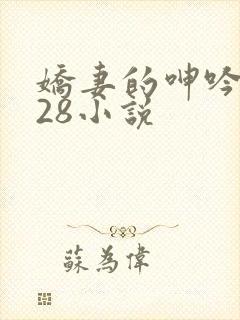 嬌妻的呻吟
28小說
蘇為偉